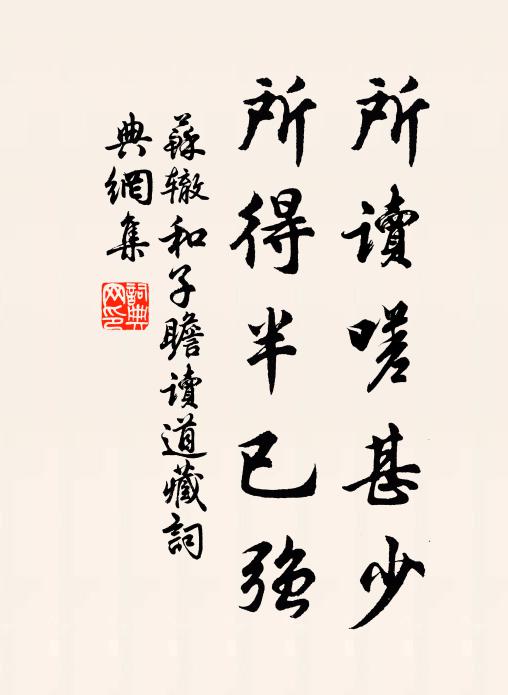 所讀嗟甚少
所得半已強
蘇辙和子瞻讀道藏詞
典網集
詞典
网印